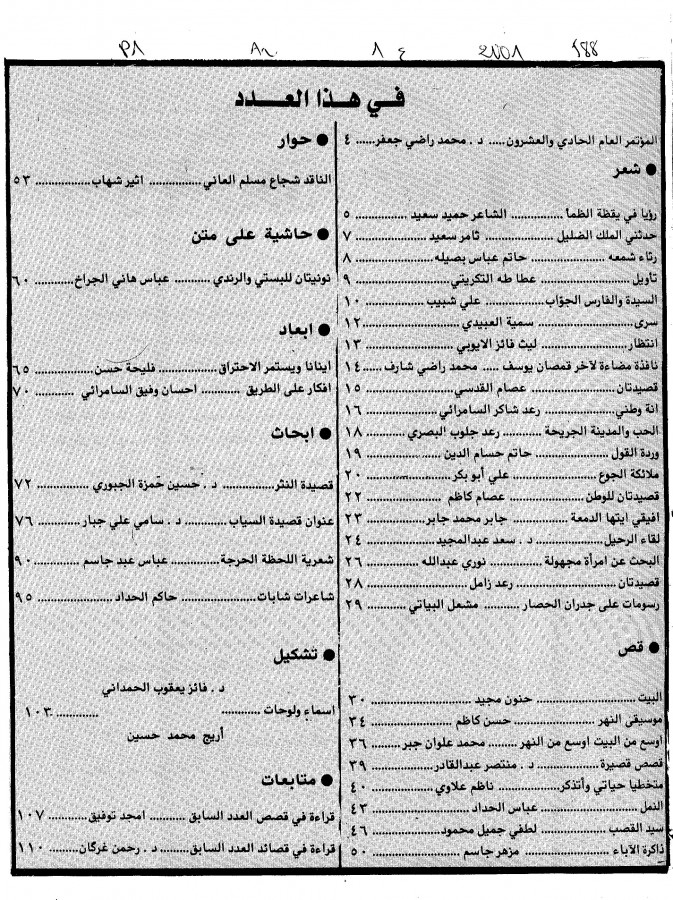 188 2001 ٤ ١ A2 P1
في هذا العدد
المؤتمر العام الحادي والعشرون ..... د . محمد راضي جعفر ...... ٤
● شعر
رؤيا في يقظة الظمأ ............... الشاعر حميد سعيد ............... ٥
حدثني الملك الضليل ............... ثامر سعيد ............... ٧
رثاء شمعه ............... حاتم عباس بصيله ............... ٨
تأويل ............... عطا طه التكريتي ............... ٩
السيدة والفارس الجوّاب ............... علي شبيب ............... ١٠
سرى ............... سمية العبيدي ............... ١٢
انتظار ............... ليث فائز الايوبي ............... ١٣
نافذة مضاءة لآخر قمصان يوسف ..... محمد راضي شارف ..... ١٤
قصيدتان ............... عصام القدسي ............... ١٥
انة وطني ............... رعد شاكر السامرائي ............... ١٦
الحب والمدينة الجريحة .......... رعد جلوب البصري .......... ١٨
وردة القول ............... حاتم حسام الدين ............... ١٩
ملائكة الجوع ............... علي أبو بكر ............... ٢٠
قصيدتان للوطن ............... عصام كاظم ............... ٢٢
افيقي ايتها الدمعة ............... جابر محمد جابر ............... ٢٣
لقاء الرحيل ............... د . سعد عبدالمجيد ............... ٢٤
البحث عن امرأة مجهولة .......... نوري عبدالله ............... ٢٦
قصيدتان ............... رعد زامل ............... ٢٨
رسومات على جدران الحصار .......... مشعل البياتي .......... ٢٩
● قص
البيت ............... حنون مجيد ............... ٣٠
موسيقى النهر ............... حسن كاظم ............... ٣٤
اوسع من البيت اوسع من النهر ........ محمد علوان جبر ........ ٣٦
قصص قصيرة ............... د . منتصر عبدالقادر ............... ٣٩
متخطيا حياتي وأتذكر ............... ناظم علاوي ............... ٤٠
النمل ............... عباس الحداد ............... ٤٣
سيد القصب ............... لطفي جميل محمود ............... ٤٦
ذاكرة الآباء ............... مزهر جاسم ............... ٥٠
● حوار
الناقد شجاع مسلم العاني ............... اثير شهاب ............... ٥٣
● حاشية على متن
نونيتان للبستي والرندي .......... عباس هاني الجراخ .......... ٦٠
● ابعاد
اينانا ويستمر الاحتراق ............... فليحة حسن ............... ٦٥
افكار على الطريق ............ احسان وفيق السامرائي ............ ٧٠
● ابحاث
قصيدة النثر ............... د . حسين حمزة الجبوري ............... ٧٢
عنوان قصيدة السياب ............ د . سامي علي جبار ............ ٧٦
شعرية اللحظة الحرجة ............... عباس عبد جاسم ............... ٩٠
شاعرات شابات ............... حاكم الحداد ............... ٩٥
● تشكيل
د . فائز يعقوب الحمداني
اسماء ولوحات ............... ............ ١٠٣
أريج محمد حسين
● متابعات
قراءة في قصص العدد السابق .......... امجد توفيق .......... ١٠٧
قراءة في قصائد العدد السابق ........ د . رحمن غركان ........ ١١٠